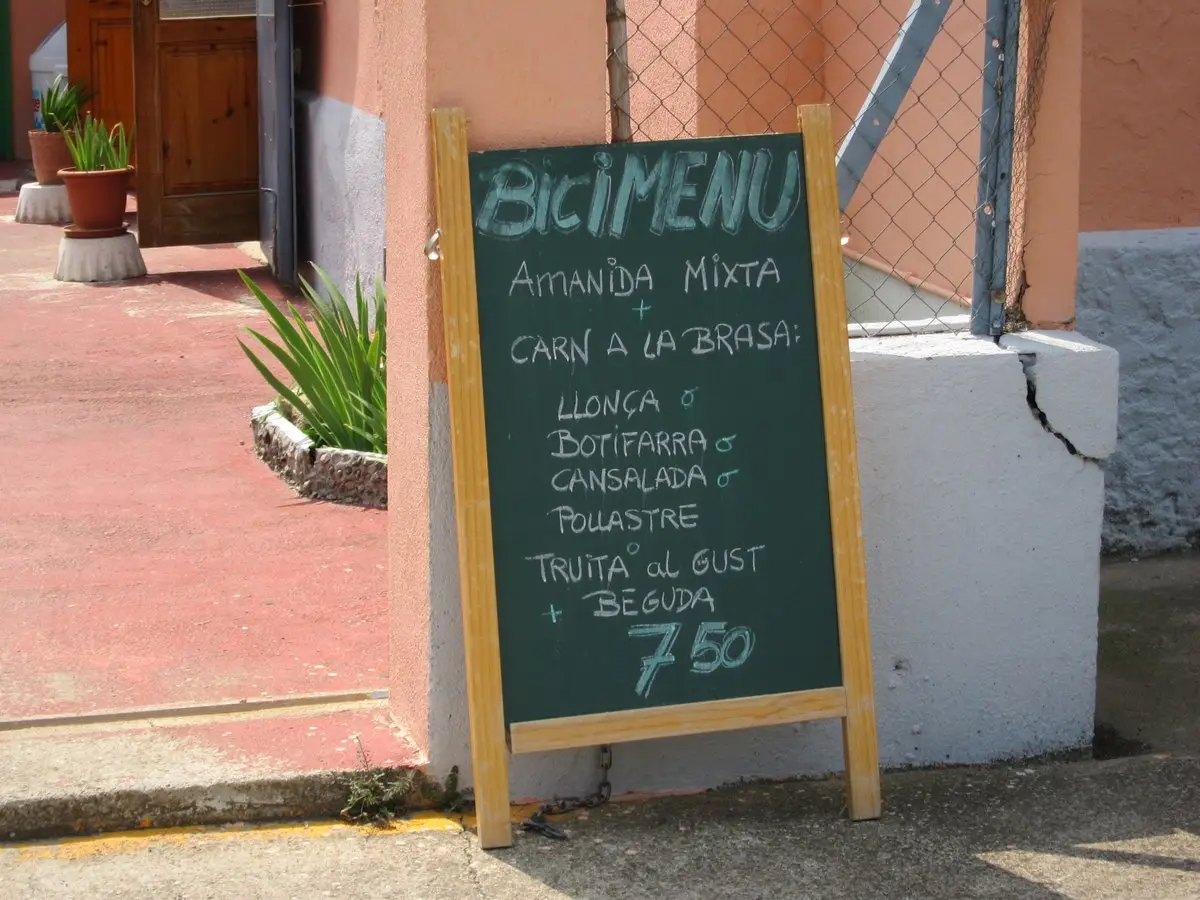 BiCiMENU
AMANIDA MIXTA
+
CARN A LA BRASA:
LLONÇA o
BOTIFARRA o
CANSALADA o
POLLASTRE
o
TRUITA al GUST
+ BEGUDA
7 50